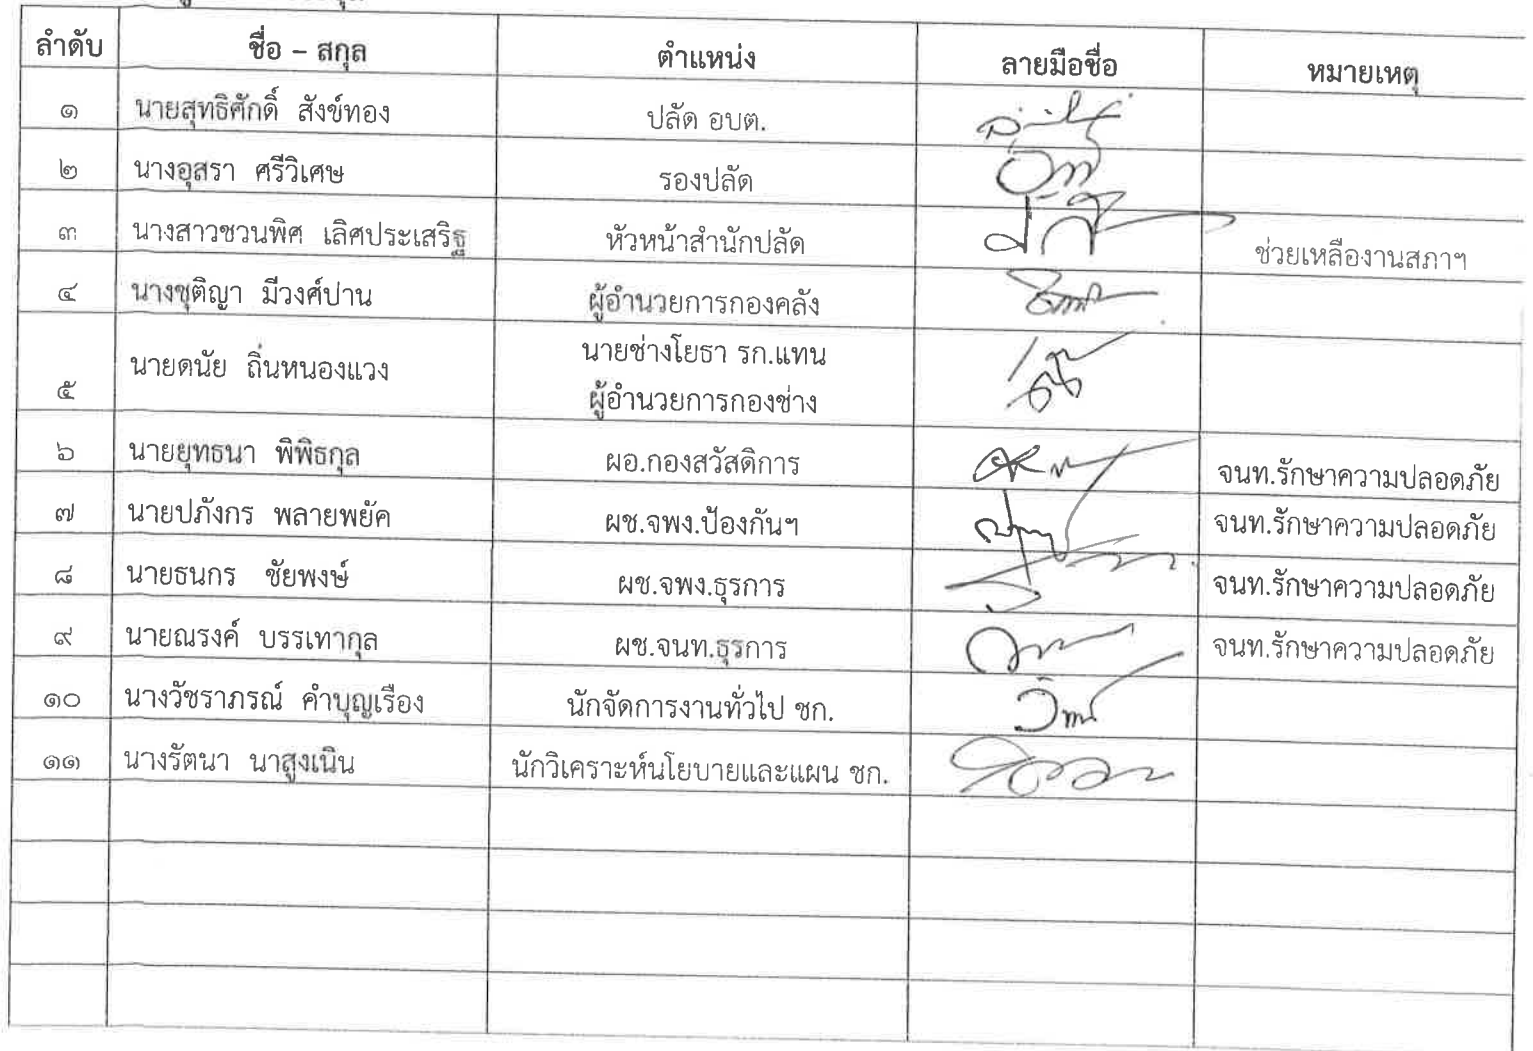 ลำดับ ชื่อ – สกุล ตำแหน่ง ลายมือชื่อ หมายเหตุ
๑ นายสุทธิศักดิ์ สังข์ทอง ปลัด อบต.
๒ นางอุสรา ศรีวิเศษ รองปลัด
๓ นางสาวชวนพิศ เลิศประเสริฐ หัวหน้าสำนักปลัด ช่วยเหลืองานสภาฯ
๔ นางชุติญา มีวงศ์ปาน ผู้อำนวยการกองคลัง
๕ นายดนัย ถิ่นหนองแวง นายช่างโยธา รก.แทน
ผู้อำนวยการกองช่าง
๖ นายยุทธนา พิพิธกุล ผอ.กองสวัสดิการ จนท.รักษาความปลอดภัย
๗ นายปภังกร พลายพยัค ผช.จพง.ป้องกันฯ จนท.รักษาความปลอดภัย
๘ นายธนกร ชัยพงษ์ ผช.จพง.ธุรการ จนท.รักษาความปลอดภัย
๙ นายณรงค์ บรรเทากุล ผช.จนท.ธุรการ จนท.รักษาความปลอดภัย
๑๐ นางวัชราภรณ์ คำบุญเรือง นักจัดการงานทั่วไป ชก.
๑๑ นางรัตนา นาสูงเนิน นักวิเคราะห์นโยบายและแผน ชก.